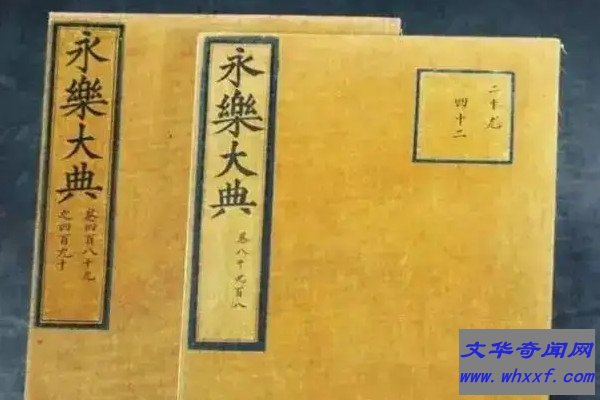 永樂大典
卷四百八十九
之四百九十
永樂大典
卷八千九百八
二十尤
四十二
文华奇闻网
www.whxxf.com